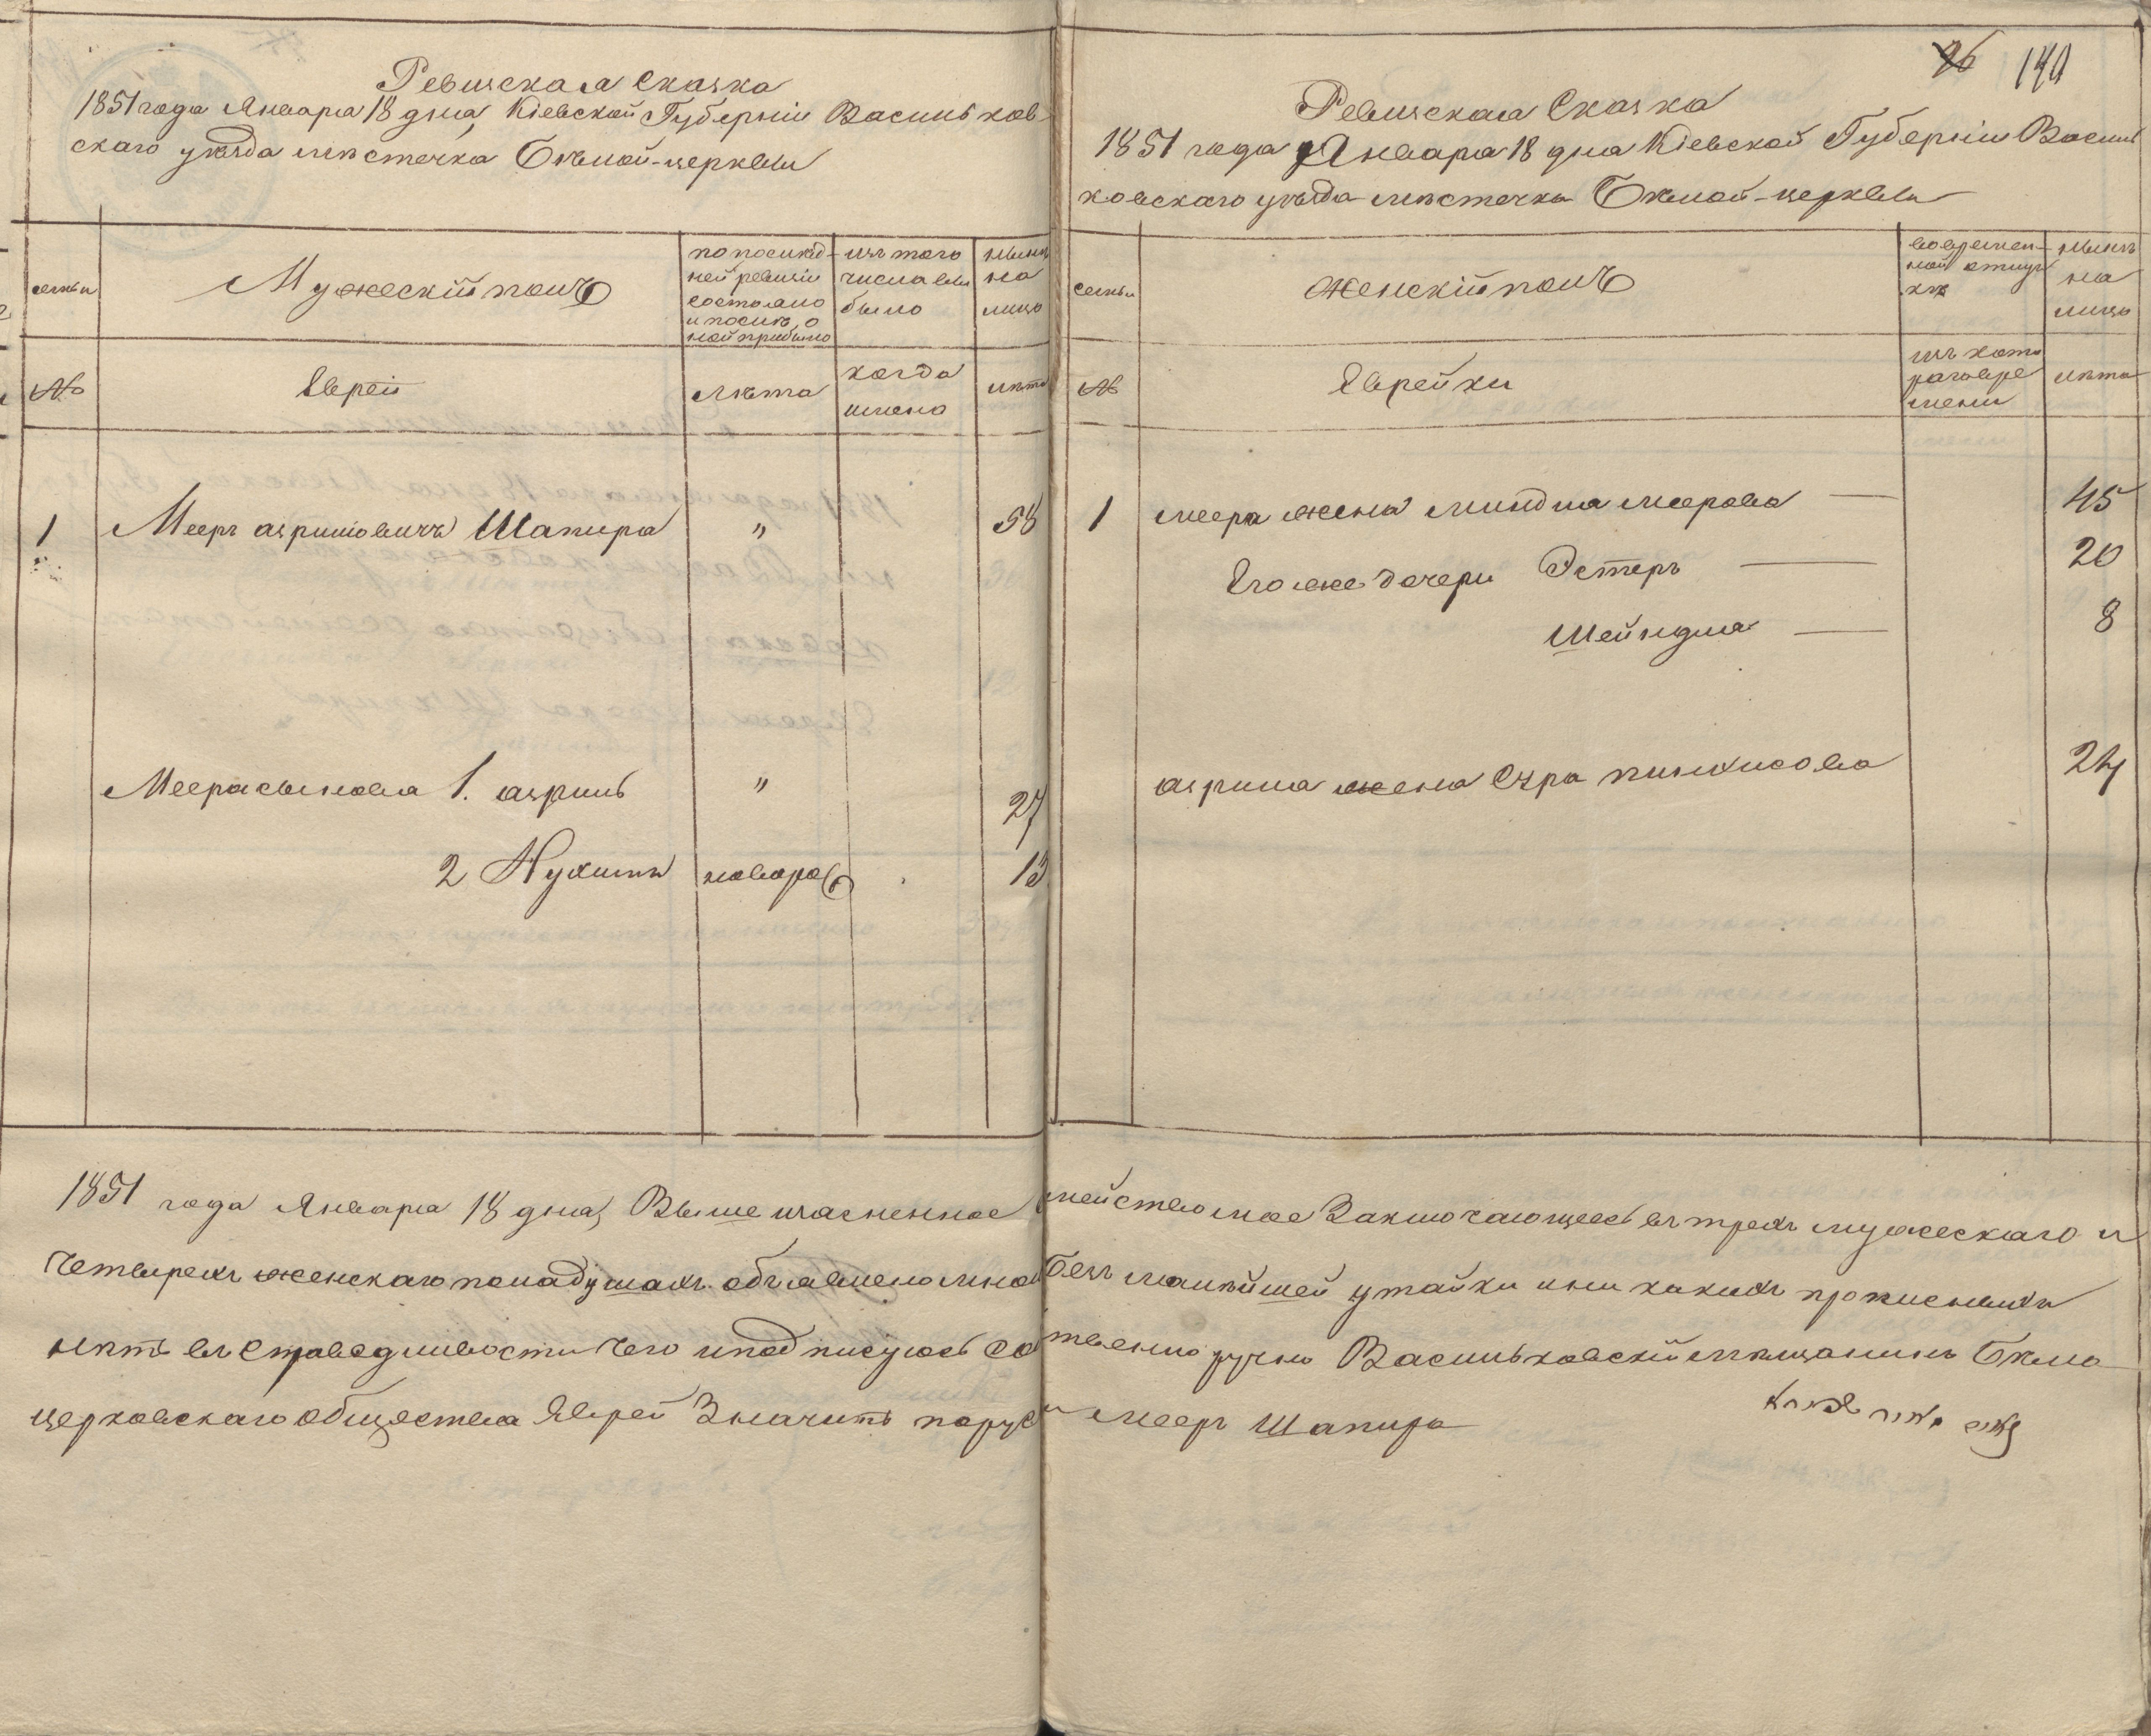 Ревизская Сказка
1851 года Января 18 дня, Кіевской Губерніи Васильков-
скаго уѣзда мѣстечка Бѣлой-церкви
семьи
Мужескій полъ
по послѣд-
ней ревизіи
состояло
и послѣ о
ной прибыло
изъ того
числа вы
было
нынѣ
на
лицо
№
Евреи
лѣта
когда
имено
лѣта
1 Мееръ азриліовичъ Шапира " 58
Меера сыновья 1. азриль " 27
2 Нухимъ новорож 13
96 140
Ревизская Сказка
1851 года Января 18 дня Кіевской Губерніи Василь
ковскаго уѣзда мѣстечка Бѣлой-церкви
семьи
женскій полъ
во времен-
ной отлуч
кѣ
нынѣ
на
лицо
№
Еврейки
изъ кото
раго вре
мени
лѣта
1 меера жена миндля меерова — 45
Его же дочери Эстеръ — 20
Шейндля — 8
азриля жена Сура пинхасова 24
1851 года Января 18 дня, Выше изясненное семейство мое Заключающеесь въ трехъ мужескаго и
Четырехъ женскаго пола душахъ объявлено мною безъ малѣйшей утайки и ни какихъ прописныхъ
нѣтъ въ справедливости чего и подписуюсь собственно ручно Васильковскій мѣщанинъ Бѣло
церковскаго общества Еврей Значитъ по руски мееръ Шапира